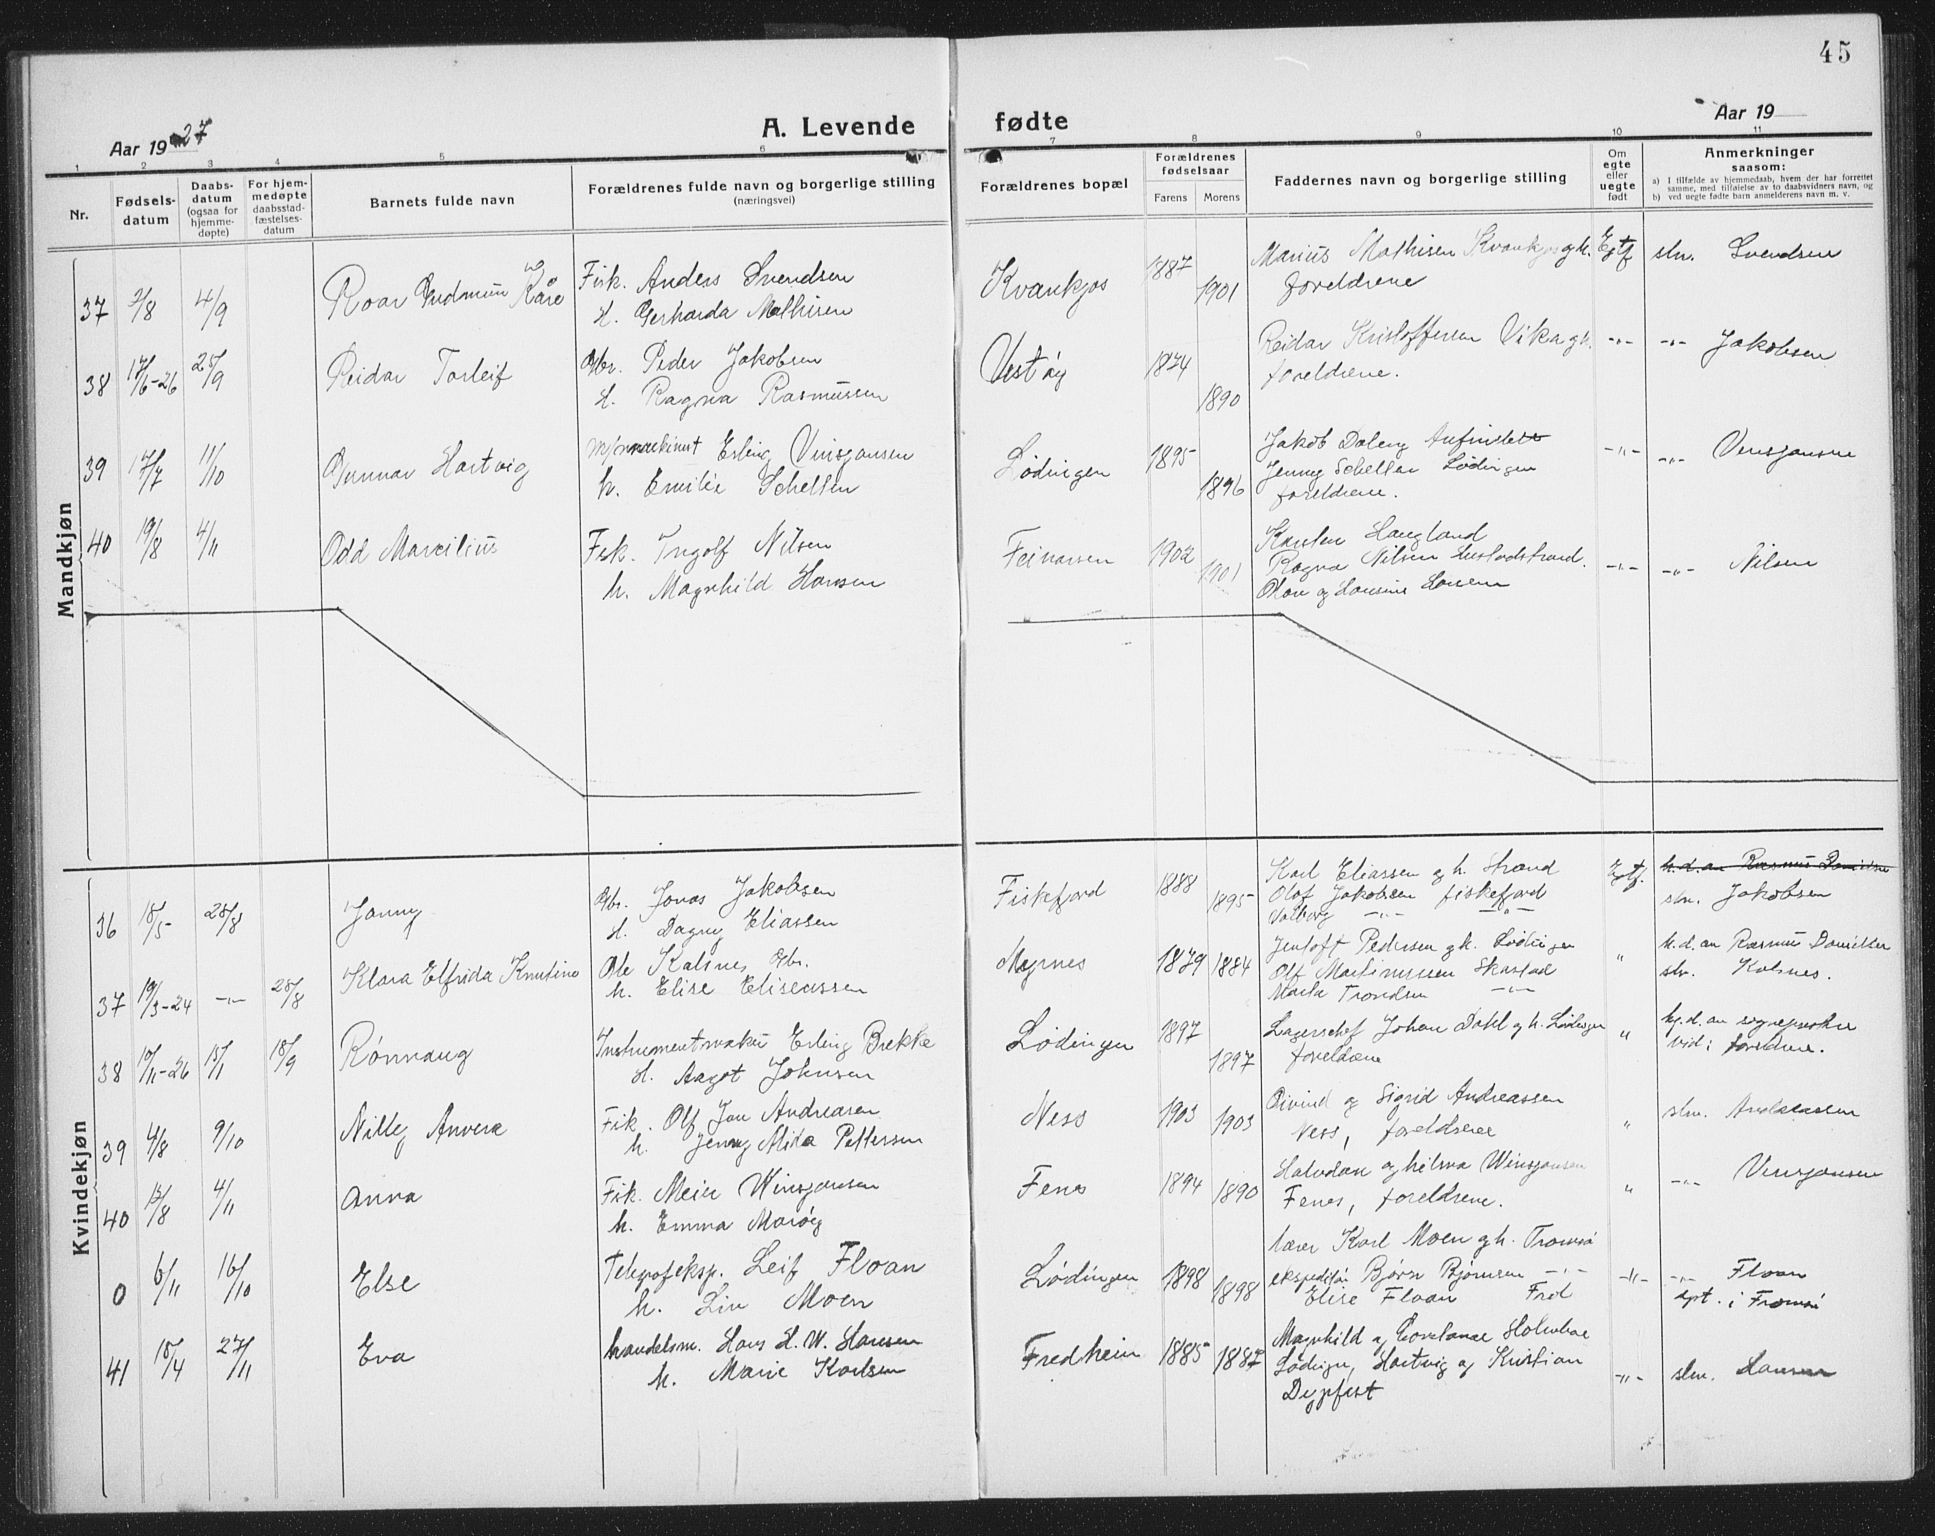 45
Aar 1927
A. Levende
fødte
Aar 19
1 2 3 4 5 6 7 8 9 10 11
Nr.
Fødsels-
datum
Daabs-
datum
(ogsaa for
hjemme-
døpte)
For hjem-
medøpte
daabsstad-
fæstelses-
datum
Barnets fulde navn
Forældrenes fulde navn og borgerlige stilling
(næringsvei)
Forældrenes bopæl
Forældrenes
fødselsaar
Farens Morens
Faddernes navn og borgerlige stilling
Om
egte
eller
uegte
født
Anmerkninger
saasom:
a) I tilfælde av hjemmedaab, hvem der har forrettet
samme, med tilføielse av to daabsvidners navn, og
b) ved uegte fødte barn anmelderens navn m. v.
Mandkjøn
37 2/8 4/9 Roar Gudmun Kåre
Fisk. Anders Svendsen
H. Gerharda Mathisen
Kvankjos 1887 1901
Marius Mathisen Kvankjos og h.
foreldrene
Egtf slm. Svendsen
38 17/6-26 25/9 Reidar Torleif
Gbr. Peder Jakobsen
H. Ragna Rasmussen
Vestøy 1874 1890
Reidar Kristoffersen Vika og h.
foreldrene.
-"- -"- Jakobsen
39 17/7 11/10 Gunnar Hartvig
Erling Vinsjansen
h. Emilie Schelten
Lødingen 1895 1896
Jakob Daleng
Jenny Schelten Lødingen
foreldrene.
-"- -"- Vinsjansen
40 19/8 4/11 Odd Marcilius
Fisk. Ingolf Nilsen
h. Magnhild Hansen
1902 1901
Karsten Haugland
Ragna Nilsen
Olav og Hansine Hansen
-"- -"- Nilsen
Kvindekjøn
36 15/5- 28/8 Jenny
Gbr. Jonas Jakobsen
H. Dagny Eliassen
Fiskefjord 1888 1895
Karl Eliassen og h. Strand
Olof Jakobsen fiskefjord
Valborg -"- -"-
Egtf. h.d. av Rasmus Danielsen
slm. Jakobsen
37 19/3-24 -"- 28/8 Klara Elfrida Knutine
Ole Kalsnes Gbr.
h. Elise Eliseussen
Myrnes 1879 1884
Jentoft Pedersen og h. Lødingen
Olf Martinussen Skarstad
Marta Trondsen -"-
" h.d. av Rasmus Danielsen
slm. Kalsnes.
38 10/11-26 15/1 18/9 Rønnaug
Instrumentmaker Erling Brekke
H. Aagot Johnsen
Lødingen 1897 1897
Lagerschef Johan Dahl og h. Lødingen
foreldrene
" hj.d. av sognepresten
vid: foreldrene.
39 4/8 9/10 Nilly Anvera
Fisk. Olf Jan Andreasen
h. Jenny Mida Pettersen
Ness 1903 1903
Øivind og Sigrid Andreassen
Ness, foreldrene
" slm. Andreassen
40 12/8 4/11 Anna
Fisk. Meier Winsjansen
h. Emma Marøy
Fenes 1894 1890
Halvdan og Hilma Winsjansen
Fenes, foreldrene.
" -"- Vinsjansen
0 6/11 16/10 Else
Telegrafeksp. Leif Floan
h. Liv Moen
Lødingen 1898 1898
lærer Karl Moen og h. Tromsø
ekspeditør Bjørn Bjørnsen -"-
Elise Floan
-"- -"- Floan
dpt. i Tromsø
41 15/4 27/11 Eva
handelsm. Hans H. W. Hansen
h. Marie Karlsen
Fredheim 1885 1887
Magnhild og Holmboe
Lødingen, Hartvig og Kristian
Dypfest
-"- slm. Hansen